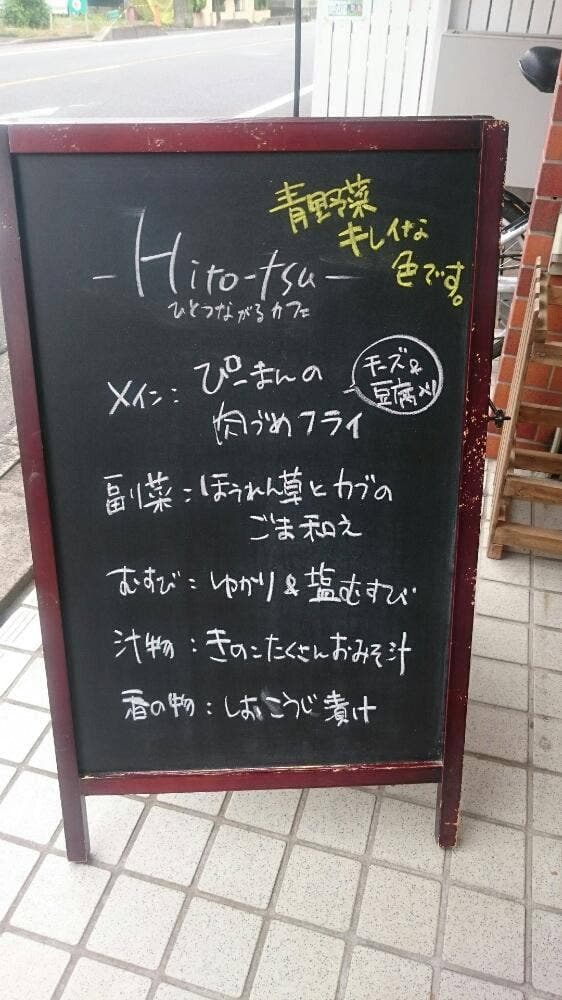 青野菜
キレイな
色です。
-Hito-tsu-
ひとつながるカフェ
メイン:ぴーまんの
肉づめフライ
チーズ&
豆腐入り
副菜:ほうれん草とカブの
ごま和え
むすび:ゆかり&塩むすび
汁物:きのこたくさんおみそ汁
香の物:しおこうじ漬け